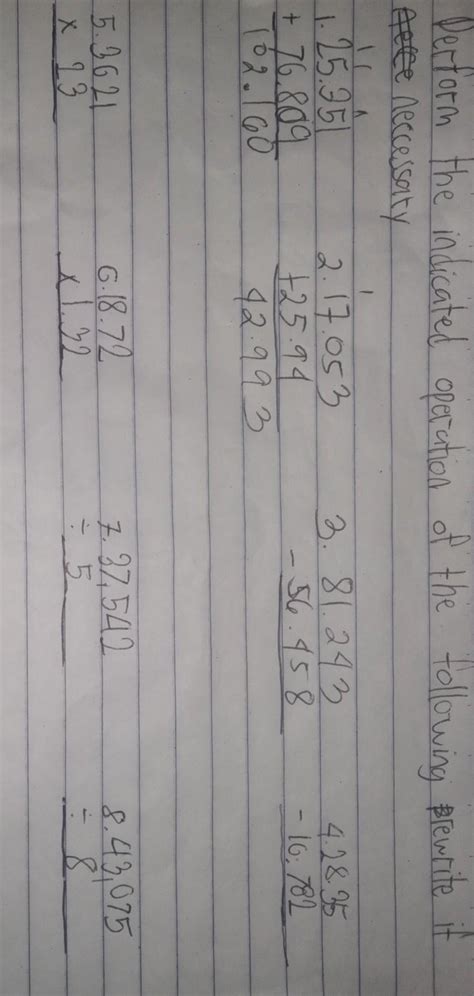 Perform the indicated operation of the following rewrite if
neccessary
1. 25.351 2. 17.053 3. 81.243 4. 28.35
+ 76.809 + 25.94 - 56.458 - 16.782
102.160 42.993
5. 3621 6. 18.72 7. 37,542 8. 43,075
x 23 x 1.32 ÷ 5 ÷ 8